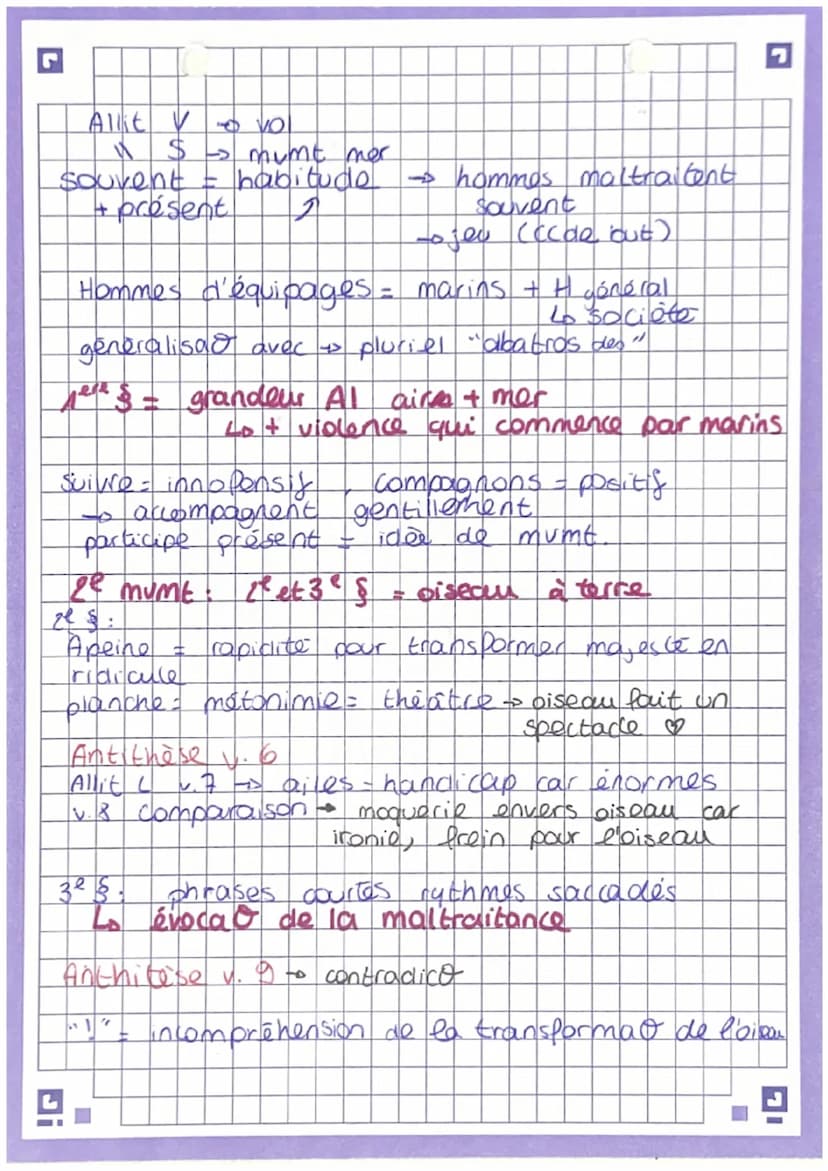 Allit V → vol
" S → mvmt mer
souvent = habitude → hommes maltraitent
+ présent ↗ souvent
→ jeu (cc de but)
Hommes d'équipages = marins + H général
↳ société
généralisaO avec → pluriel "albatros des"
1ere § = grandeur Al aire + mer
↳ + violence qui commence par marins
suivre = innofensif, compagnons = positif
→ accompagnent gentillement
participe présent = idée de mvmt.
2e mvmt : 2e et 3e § = oiseau à terre
2e § :
Àpeine = rapidité pour transformer majesté en
ridicule
planche = métonimie = théâtre → oiseau fait un
spectacle ♡
Antithèse v. 6
Allit L v.7 → ailes = handicap car énormes
v.8 comparaison → moquerie envers oiseau car
ironie, frein pour l'oiseau
3e § : phrases courtes rythmes saccadés
↳ évocaO de la maltraitance
Anthitèse v. 9 → contradicO
"!" = incompréhension de la transformaO de l'oiseau